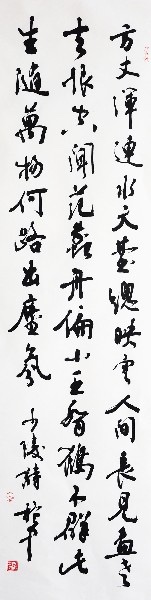 方丈渾連水天台總映雲人間長見畫老
去恨空聞范蠡舟偏小王喬鶴不群此
生隨萬物何路出塵氛
少陵詩